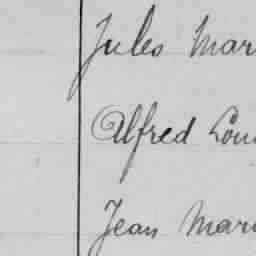 Jules Mar
Alfred Lou
Jean Mari